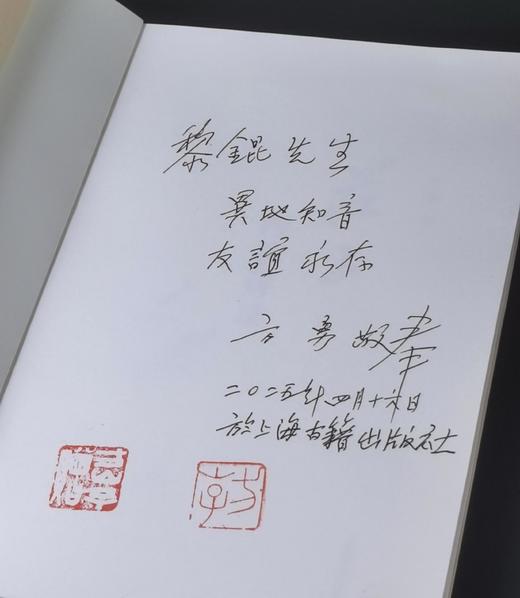 黎錕先生
異地知音
友誼永存
方勇敬奉
二〇二五年四月十六日
於上海古籍出版社